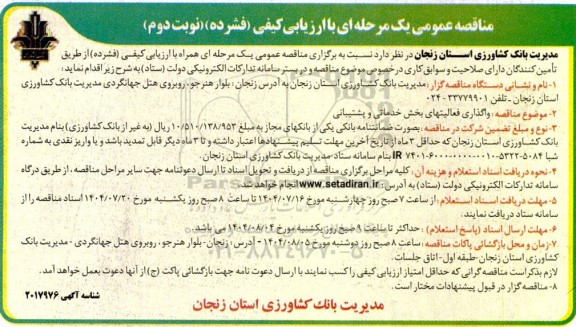 مناقصه عمومی یک مرحله ای با ارزیابی کیفی (فشرده) (نوبت دوم)
مدیریت بانک کشاورزی استان زنجان در نظر دارد نسبت به برگزاری مناقصه عمومی یک مرحله ای همراه با ارزیابی کیفی (فشرده) از طریق
تأمین کنندگان دارای صلاحیت و سوابق کاری در خصوص موضوع مناقصه و در بستر سامانه تدارکات الکترونیکی دولت (ستاد) به شرح زیر اقدام نماید:
۱- نام و نشانی دستگاه مناقصه گزار: مدیریت بانک کشاورزی استان زنجان به آدرس زنجان : بلوار هنرجو، روبروی هتل جهانگردی مدیریت بانک کشاورزی
استان زنجان - تلفن ۳۳۷۷۹۹۰۱ - ۰۲۴
۲- موضوع مناقصه: واگذاری فعالیتهای بخش خدماتی و پشتیبانی
۳- نوع و مبلغ تضمین شرکت در مناقصه: بصورت ضمانتنامه بانکی یکی از بانکهای مجاز به مبلغ ۱۰/۵۱۰/۱۳۸/۹۵۳ ریال (به غیر از بانک کشاورزی) بنام مدیریت
بانک کشاورزی استان زنجان که حداقل ۳ ماه از تاریخ آخرین مهلت تسلیم پیشنهادها اعتبار داشته و تا ۳ ماه دیگر قابل تمدید باشد و یا واریز نقدی به شماره
شبا IR ۷۴۰۱-۶۰۰۰-۰۰۰۰-۰۱۰۰-۵۳۲۲-۵۰۸۴ بنام سامانه ستاد-مدیریت بانک کشاورزی استان زنجان.
۴- نحوه دریافت اسناد استعلام و هزینه آن: کلیه مراحل برگزاری مناقصه از دریافت و تحویل اسناد تا ارسال دعوتنامه جهت سایر مراحل مناقصه، از طریق درگاه
سامانه تدارکات الکترونیکی دولت (ستاد) به آدرس www.setadiran.ir انجام خواهد شد.
۵- مهلت دریافت اسناد استعلام: از ساعت ۷ صبح روز چهارشنبه مورخ ۱۴۰۴/۰۷/۱۶ تا ساعت ۸ صبح روز یکشنبه مورخ ۱۴۰۴/۰۷/۲۰ اسناد مناقصه را از
سامانه ستاد دریافت نمایند.
۶- مهلت ارسال اسناد (پاسخ استعلام): حداکثر تا ساعت ۹ صبح روز یکشنبه مورخ ۱۴۰۴/۰۸/۰۴ می باشد.
۷- زمان و محل بازگشائی پاکات مناقصه: ساعت ۸ صبح روز دوشنبه مورخ ۱۴۰۴/۰۸/۰۵ - آدرس: زنجان - بلوار هنرجو، روبروی هتل جهانگردی - مدیریت بانک
کشاورزی استان زنجان - طبقه اول - اتاق جلسات.
لازم بذکر است مناقصه گرانی که حداقل امتیاز ارزیابی کیفی را کسب نمایند با ارسال دعوت نامه جهت بازگشائی پاکت (ج) از آنها دعوت بعمل خواهد آمد.
۸- مناقصه گزار در قبول پیشنهادات مختار است.
شناسه آگهی ۲۰۱۷۹۷۶
مدیریت بانک کشاورزی استان زنجان